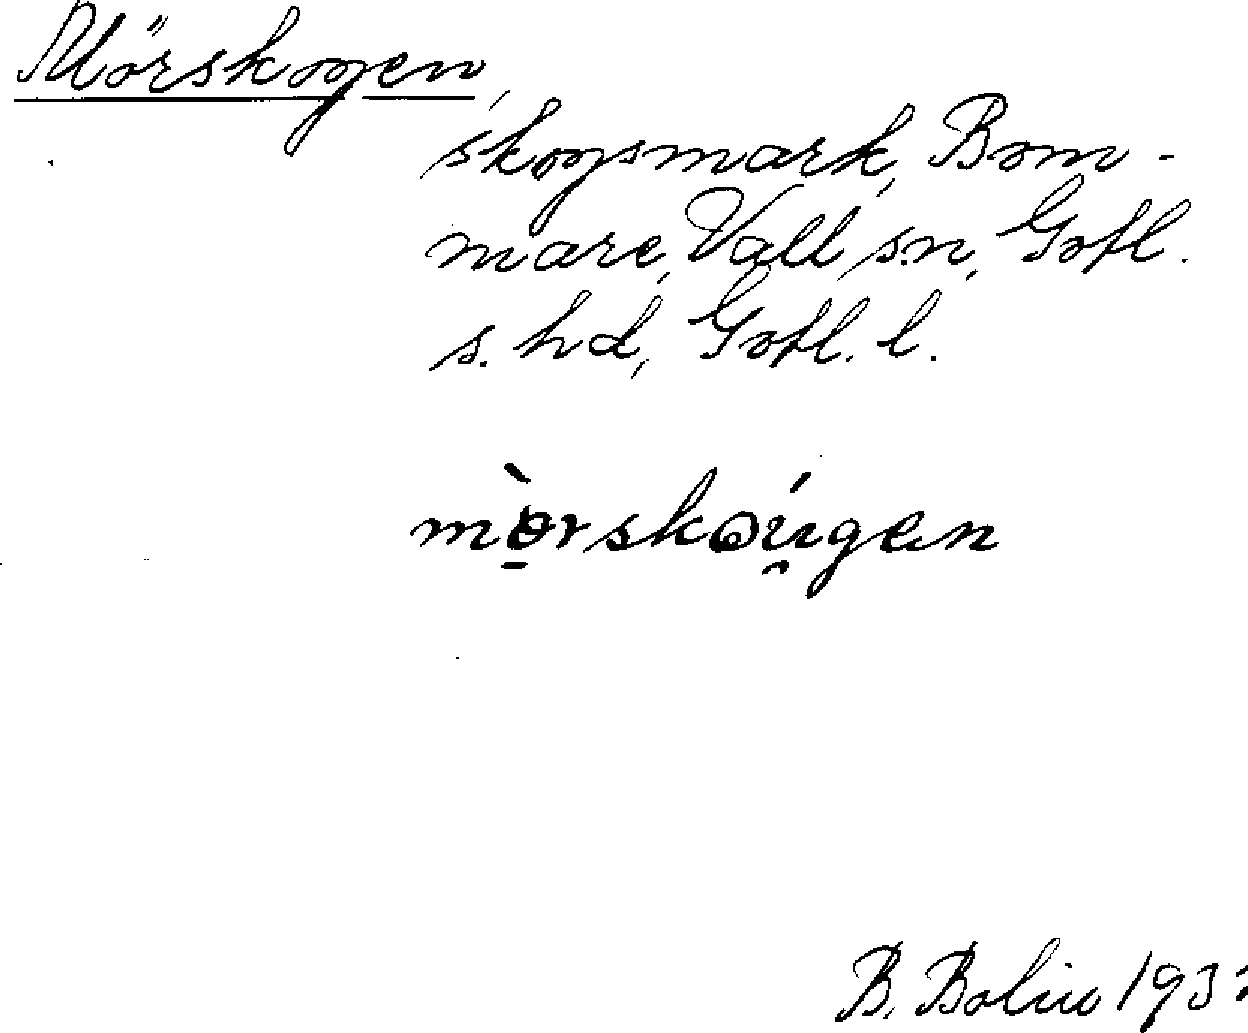 Mörskogen,
skogsmark, Bom-
mare, Vall sn, Gotl.
s. hd, Gotl. l.
mòrskoúgen
B. Bolin